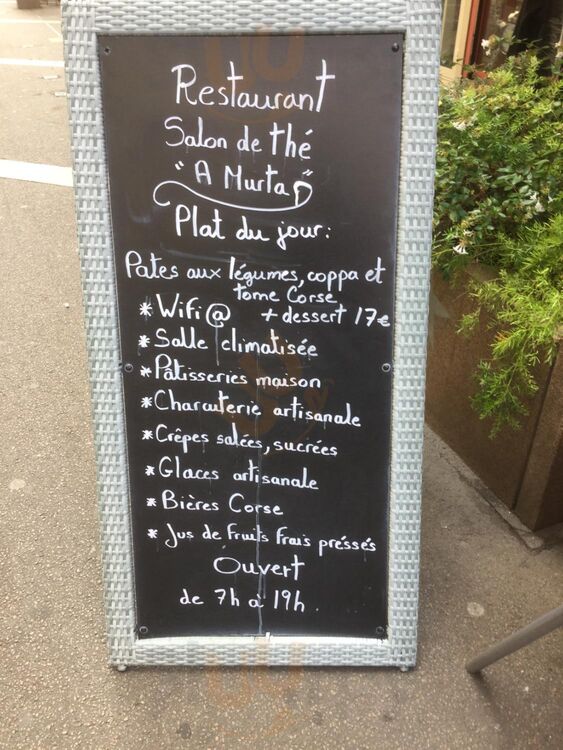 Restaurant
Salon de thé
"A Murta"
Plat du jour:
Pates aux légumes, coppa et
tome Corse
* Wifi @ + dessert 17€
* Salle climatisée
* Pâtisseries maison
* Charcuterie artisanale
* Crêpes salées, sucrées
* Glaces artisanale
* Bières Corse
* Jus de fruits frais préssés
Ouvert
de 7h à 19h.